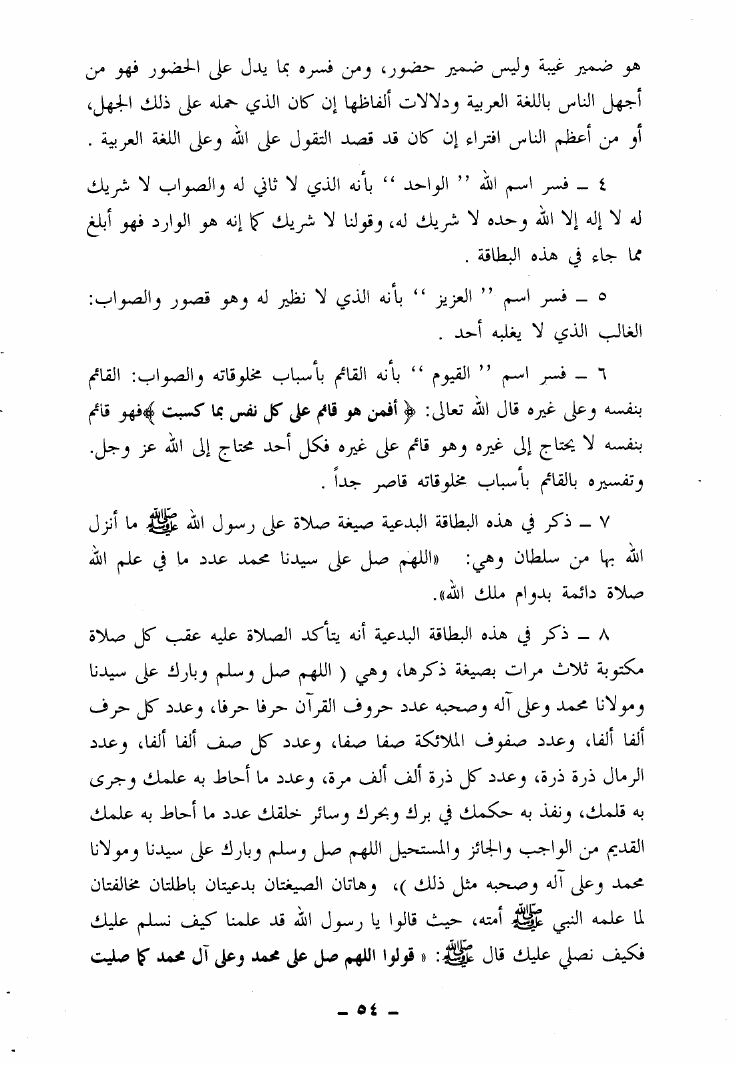 هو ضمير غيبة وليس ضمير حضور، ومن فسره بما يدل على الحضور فهو من
أجهل الناس باللغة العربية ودلالات ألفاظها إن كان الذي حمله على ذلك الجهل،
أو من أعظم الناس افتراء إن كان قد قصد التقول على الله وعلى اللغة العربية .
٤ ــ فسر اسم الله ’’ الواحد ‘‘ بأنه الذي لا ثاني له والصواب لا شريك
له لا إله إلا الله وحده لا شريك له، وقولنا لا شريك كما إنه هو الوارد فهو أبلغ
مما جاء في هذه البطاقة .
٥ ــ فسر اسم ’’ العزيز ‘‘ بأنه الذي لا نظير له وهو قصور والصواب:
الغالب الذي لا يغلبه أحد .
٦ ــ فسر اسم ’’ القيوم ‘‘ بأنه القائم بأسباب مخلوقاته والصواب: القائم
بنفسه وعلى غيره قال الله تعالى: ﴿ أفمن هو قائم على كل نفس بما كسبت ﴾فهو قائم
بنفسه لا يحتاج إلى غيره وهو قائم على غيره فكل أحد محتاج إلى الله عز وجل.
وتفسيره بالقائم بأسباب مخلوقاته قاصر جداً .
٧ ــ ذكر في هذه البطاقة البدعية صيغة صلاة على رسول الله ﷺ ما أنزل
الله بها من سلطان وهي: «اللهم صل على سيدنا محمد عدد ما في علم الله
صلاة دائمة بدوام ملك الله».
٨ ــ ذكر في هذه البطاقة البدعية أنه يتأكد الصلاة عليه عقب كل صلاة
مكتوبة ثلاث مرات بصيغة ذكرها، وهي ( اللهم صل وسلم وبارك على سيدنا
ومولانا محمد وعلى آله وصحبه عدد حروف القرآن حرفا حرفا، وعدد كل حرف
ألفا ألفا، وعدد صفوف الملائكة صفا صفا، وعدد كل صف ألفا ألفا، وعدد
الرمال ذرة ذرة، وعدد كل ذرة ألف ألف مرة، وعدد ما أحاط به علمك وجرى
به قلمك، ونفذ به حكمك في برك وبحرك وسائر خلقك عدد ما أحاط به علمك
القديم من الواجب والجائز والمستحيل اللهم صل وسلم وبارك على سيدنا ومولانا
محمد وعلى آله وصحبه مثل ذلك )، وهاتان الصيغتان بدعيتان باطلتان مخالفتان
لما علمه النبي ﷺ أمته، حيث قالوا يا رسول الله قد علمنا كيف نسلم عليك
فكيف نصلي عليك قال ﷺ: « قولوا اللهم صل على محمد وعلى آل محمد كما صليت
ــ ٥٤ ــ